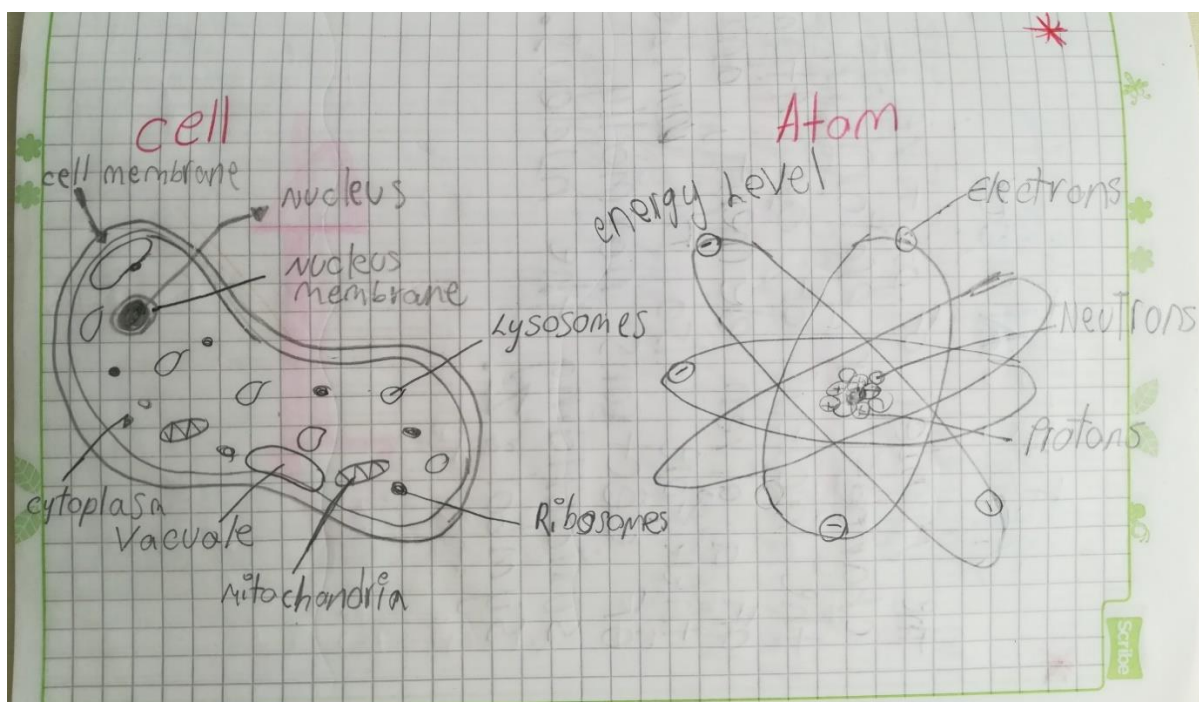 cell
cell membrane
Nucleus
Nucleus
membrane
Lysosomes
cytoplasm
Vacuole
Mitochandria
Ribosomes
Atom
energy Level
Electrons
Neutrons
Protons
Scribe